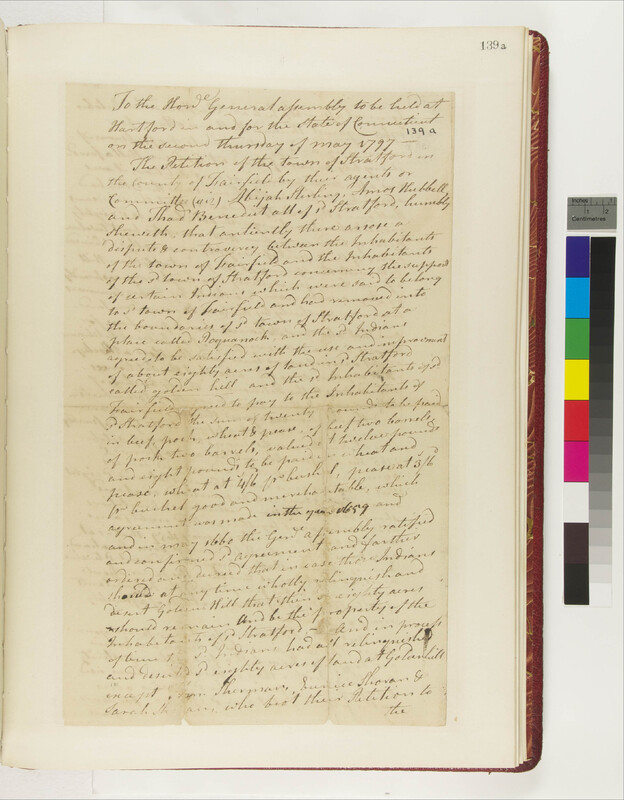 139a
To the Honble General assembly to be held at
Hartford in and for the State of Connecticut
139a
on the second thursday of may 1797 —
The Petition of the town of Stratford in
the County of Fairfield by their agents or
Committee (viz) Abijah Sterling, Amos Hubbell
and Thad Benedict all of sd Stratford, humbly
sheweth that antiently there arose a
dispute & controversy between the Inhabitants
of the town of Fairfield and the Inhabitants
of the sd town of Stratford concerning the support
of certain Indians which were said to belong
to sd town of Fairfield and had removed into
the boundaries of sd town of Stratford at a
place called Poquanock, and the sd Indians
agreed to be satisfied with the use and improvement
of about eighty acres of land in sd Stratford
called golden hill and the sd Inhabitants of sd
Fairfield agreed to pay to the Inhabitants of
sd Stratford the sum of twenty pounds to be paid
in beef, pork, wheat & pease, of beef two barrels,
of pork two barrels, valued at twelve pounds
and eight pounds to be paid in wheat and
pease, wheat at 4/6 pr bushel, pease at 3/6
pr bushel good and merchantable, which
agreement was made in the year 1659 and
and in may 1660 the Genl assembly ratified
and confirmed sd agreement and farther
ordered and that in case these Indians
should at any time wholly relinquish and
desert Golden Hill that then sd eighty acres
should remain and be the property of the
Inhabitants of sd Stratford — And in process
of time sd Indians had all relinquished
and deserted sd eighty acres of land at Golden hill
except Sherman, Eunice Shoran &
Sarah who bro't their Petition to
the